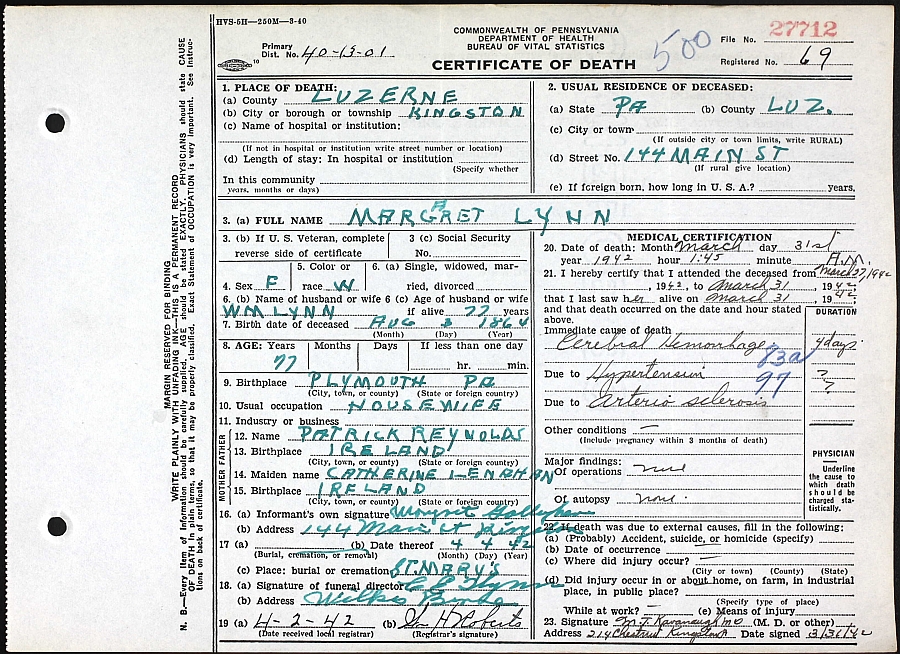 HVS-5H—250M—3-40
COMMONWEALTH OF PENNSYLVANIA
DEPARTMENT OF HEALTH
BUREAU OF VITAL STATISTICS
CERTIFICATE OF DEATH
Primary Dist. No. 40-13-01
500
File No. 27712
Registered No. 69
MARGIN RESERVED FOR BINDING
WRITE PLAINLY WITH UNFADING INK—THIS IS A PERMANENT RECORD
N. B.—Every item of information should be carefully supplied. AGE should be stated EXACTLY. PHYSICIANS should state CAUSE
OF DEATH in plain terms, so that it may be properly classified. Exact Statement of OCCUPATION is very important. See instruc-
tions on back of certificate.
1. PLACE OF DEATH:
(a) County LUZERNE
(b) City or borough or township KINGSTON
(c) Name of hospital or institution:
(If not in hospital or institution write street number or location)
(d) Length of stay: In hospital or institution
(Specify whether
In this community
years, months or days)
2. USUAL RESIDENCE OF DECEASED:
(a) State PA (b) County LUZ.
(c) City or town
(If outside city or town limits, write RURAL)
(d) Street No. 144 MAIN ST
(If rural give location)
(e) If foreign born, how long in U. S. A.? years,
3. (a) FULL NAME MARGARET LYNN
3. (b) If U. S. Veteran, complete
reverse side of certificate
3 (c) Social Security
No.
4. Sex F
5. Color or
race W
6. (a) Single, widowed, mar-
ried, divorced
6. (b) Name of husband or wife 6 (c) Age of husband or wife
WM LYNN if alive 77 years
7. Birth date of deceased AUG 3 1864
(Month) (Day) (Year)
8. AGE: Years Months Days If less than one day
77 hr. min.
9. Birthplace PLYMOUTH PA
(City, town, or county) (State or foreign country)
10. Usual occupation HOUSEWIFE
11. Industry or business
FATHER
12. Name PATRICK REYNOLDS
13. Birthplace IRELAND
(City, town, or county) (State or foreign country)
MOTHER
14. Maiden name CATHERINE LENAHAN
15. Birthplace IRELAND
(City, town, or county) (State or foreign country)
16. (a) Informant's own signature Margret Gallagher
(b) Address 144 Main St Kingston
17 (a) (b) Date thereof 4 4 42
(Burial, cremation, or removal) (Month) (Day) (Year)
(c) Place: burial or cremation ST. MARY'S
18. (a) Signature of funeral director
(b) Address Wilkes Barre
19 (a) 4-2-42 (b) H Roberts
(Date received local registrar) (Registrar's signature)
MEDICAL CERTIFICATION
20. Date of death: Month March day 31st
year 1942 hour 1:45 minute A.M.
21. I hereby certify that I attended the deceased from March 27, 1942
, 1942, to March 31, 1942
that I last saw her alive on March 31, 1942
and that death occurred on the date and hour stated
above.
DURATION
Immediate cause of death
Cerebral Hemorrhage 4 days
83a
Due to Hypertension ?
97
Due to Arterio sclerosis ?
Other conditions —
(Include pregnancy within 3 months of death)
Major findings:
Of operations none
Of autopsy none.
PHYSICIAN
Underline
the cause to
which death
should be
charged sta-
tistically.
22. If death was due to external causes, fill in the following:
(a) (Probably) Accident, suicide, or homicide (specify)
(b) Date of occurrence —
(c) Where did injury occur? —
(City or town) (County) (State)
(d) Did injury occur in or about home, on farm, in industrial
place, in public place?
(Specify type of place)
While at work? — (e) Means of injury
23. Signature M. J. Kavanaugh MD (M. D. or other)
Address 214 Chestnut Kingston Date signed 3/31/42